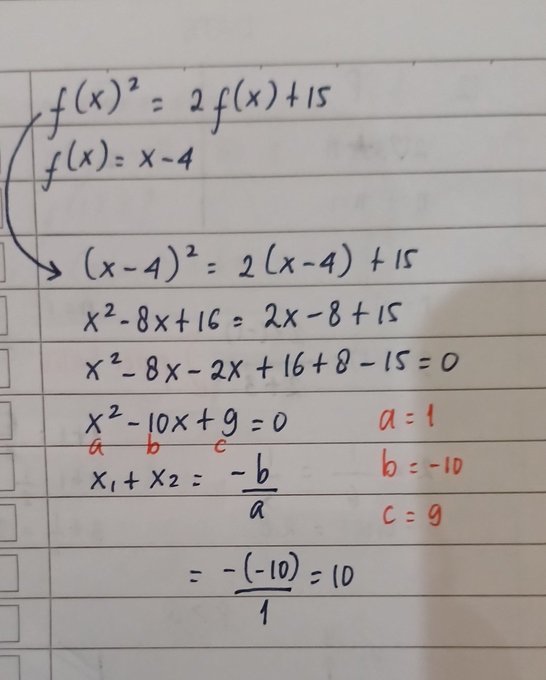 f(x)² = 2f(x)+15
f(x) = x-4
(x-4)² = 2(x-4) + 15
x²-8x+16 = 2x-8+15
x²-8x-2x+16+8-15=0
x²-10x+9=0 a=1
a b c
x₁+x₂ = -b/a b=-10
c=9
= -(-10)/1 = 10